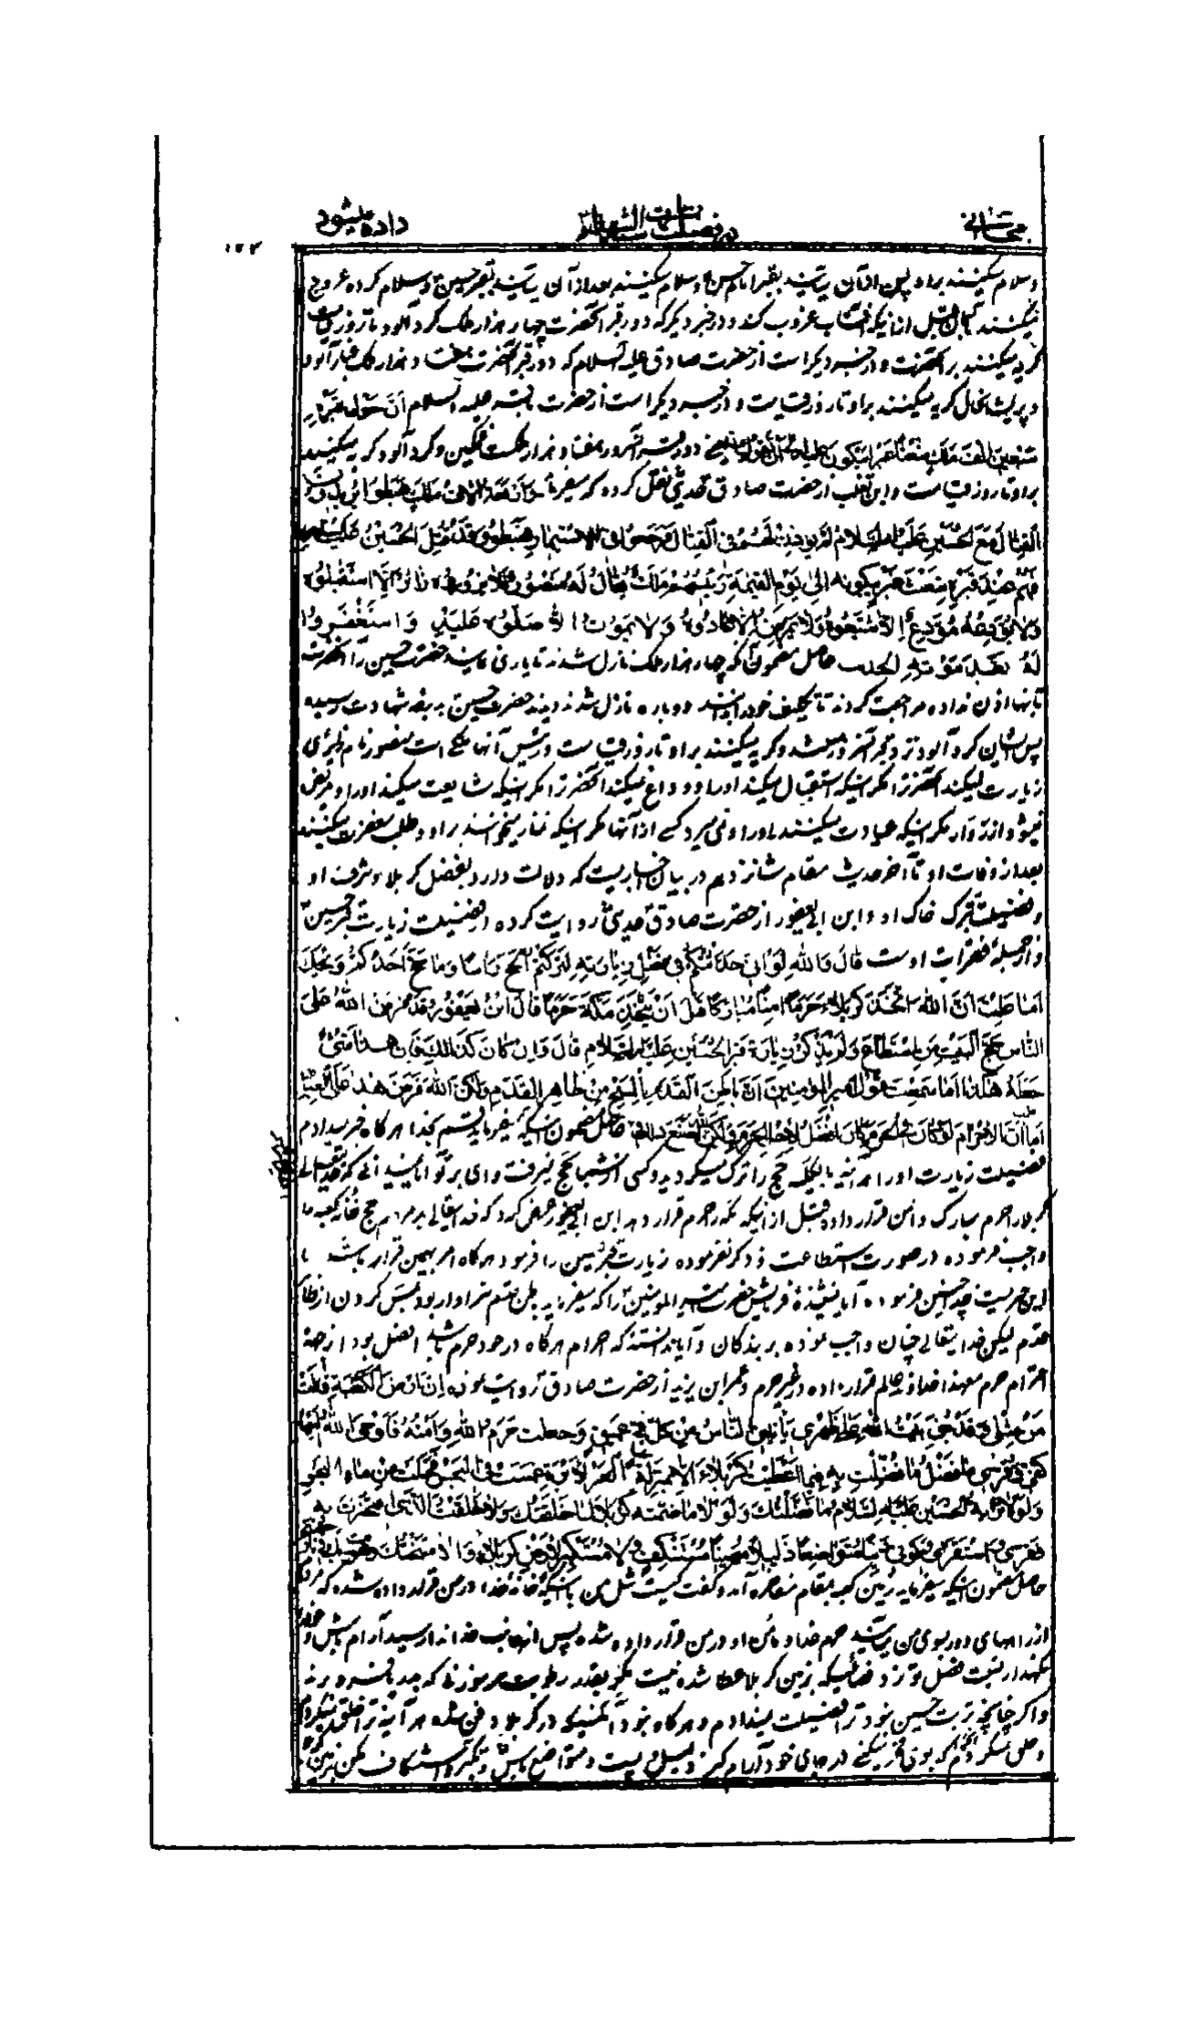 مجتبائی در فضیلت زیارت سید الشهدا داده میشود
۱۲۳
و سلام میکنند براو پس ازان میآیند بقبر امام حسن و سلام میکنند بعد از آن میآیند بقبر حسین و سلام کرده عروج
میکنند قبل ازانیکه آفتاب غروب کند و در خبر دیگر که دور قبر آنحضرت چهار هزار ملک گرد آلود تا روز قیامت
گریه میکنند بر آنحضرت و در خبر دیگر است از حضرت صادق علیه السلام که دور قبر آنحضرت هفتاد هزار ملک غبار آلود
و پریشانحال گریه میکنند براو تا روز قیامت و در خبر دیگر است از حضرت علیه السلام ان حول قبره
سبعین الف ملک شعثا غبرا یبکون علیه یعنی دور قبر آنسرور هفتاد هزار ملک غمگین و گرد آلود گریه میکنند
براو تا روز قیامت و ابن تغلب از حضرت صادق حدیثی نقل کرده که میفرماید اربعة الاف ملک هبطوا یریدون
القتال مع الحسین علیه السلام لم یؤذن لهم فی القتال فرجعوا فی الاستیمار فهبطوا و قد قتل الحسین علیه السلام
فهم عند قبره شعث غبر یبکونه الی یوم القیمة رئیسهم ملک یقال له منصور فلا یزوره زائر الا استقبلوه
ولا یودعه مودع الا شیعوه ولا یمرض الا عادوه ولا یموت الا صلوا علیه و استغفروا
له بعد موته الحدیث حاصل مضمون آنکه چهار هزار ملک نازل شدند تا یاری نمایند حضرت حسین را آنحضرت
بآنها اذن نداده مراجعت کردند تا تکلیف خود را بدانند دوباره نازل شدند دیدند حضرت حسین بدرجه شهادت رسیده
پس ایشان گرد آلود نزد قبر آنسرور میباشند و گریه میکنند براو تا روز قیامت و رئیس آنها ملکی است منصور نام زایری
زیارت نمیکند آنحضرت را مگر اینکه استقبال میکند اورا و وداع نمیکند آنحضرت را مگر اینکه مشایعت میکند اورا و مریض
نمیشود از زوار مگر اینکه عیادت میکنند اورا و نمی میرد کسی از آنها مگر اینکه نماز میخوانند براو و طلب مغفرت میکنند
بعد از وفات او تا آخر حدیث مقام شانزدهم در بیان اخباریست که دلالت دارد بفضل کربلا و شرف او
و فضیلت تبرک خاک او و ابن ابی یعفور از حضرت صادق حدیثی روایت کرده در فضیلت زیارت قبر حسین
و از جمله فقرات اوست قال والله لو انی حدثتکم فی فضل زیارته لترکتم الحج راسا وما حج احد منکم ویحک
اما علمت ان الله اتخذ کربلاء حرما امنا مبارکا قبل ان یتخذ مکة حرما قال ابن یعفور قد فرض الله علی
الناس حج البیت من استطاع ولم یذکر زیارة قبر الحسین علیه السلام قال وان کان کذلک فان هذا شئ
جعله هکذا اما سمعت قول امیر المؤمنین ان باطن القدم بالمسح من ظاهر القدم ولکن الله فرض هذا علی العباد
اما ان الاحرام لو کان فی الحرم کان افضل لاجل الحرم ولکن الله صنع ذلک حاصل مضمون اینکه میفرماید قسم بخدا هرگاه خبر میدادم
فضیلت زیارت اورا هر آینه بالکلیه حج را ترک میکردید و کسی از شما بحج نمیرفت وای بر تو آیا نمیدانی که خدایتعالی
کربلا را حرم مبارک و امن قرار داده قبل از اینکه مکه را حرم قرار دهد ابن ابی یعفور عرض کرد که خدایتعالی بر مردم حج خانه کعبه را
واجب فرموده در صورت استطاعت و ذکر نفرموده زیارت قبر حسین را فرمود هرگاه امر بهمین قرار باشد
این امریست که چنین فرموده آیا نشنیدۀ فرمایش حضرت امیر المؤمنین را که میفرماید بطن قدم سزاوار بود بمسح کردن از ظاهر
قدم لیکن خدایتعالی چنان واجب نموده بر بندگان و آیا ندانستۀ که احرام هرگاه در خود حرم باشد افضل بود از جهة
احترام حرم معهذا خداوند عالم قرار داده در غیر حرم و عمر ابن یزید از حضرت صادق روایت نموده ان ارض الکعبة قالت
من مثلی وقد بنی بیت الله علی ظهری یأتینی الناس من کل فج عمیق وجعلت حرم الله وامنه فاوحی الله الیها
کفی وقری ما فضل ما فضلت به فیما اعطیت کربلاء الا بمنزلة الابرة غمست فی البحر فحملت من ماء البحر
ولولا تربة الحسین علیه السلام ما فضلتک ولولا ما ضمته کربلاء لما خلقتک ولا خلقت الذی افتخرت به
فقری واستقری وکونی ذنبا متواضعا ذلیلا مهینا غیر مستنکف ولا مستکبر لارض کربلاء والا
حاصل مضمون اینکه میفرماید زمین کعبه بمقام مفاخره آمد و گفت کیست مثل من با اینکه خانه خدا در من قرار داده شده که مردم
از راههای دور بسوی من میآیند حرم خدا و مأمن او در من قرار داده شده پس از جانب خدا ندا رسید آرام باش و
نگهدار نسبت فضل تو نزد فضلیکه بزمین کربلا عطا شده نیست مگر بقدر رطوبت سر سوزنی که بدریا فرو برند
و اگر چنانچه تربت حسین نبود ترا فضیلت نمیدادم و هرگاه نبود آنکسیکه در کربلا دفن شده هر آینه ترا خلق نمیکردم
و خلق نمیکردم آنچه بوی فخر میکنی در جای خود آرام گیر و ذلیل و پست و متواضع باش و تکبر و استنکاف مکن بزمین کربلا